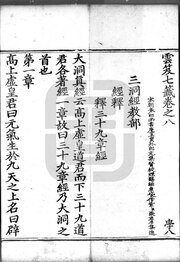 雲笈七籤卷之八
學八
三洞經教部
經釋
釋三十九章經
大洞真經云高上虛皇道君而下三十九道
君各著經一章故曰三十九章經乃大洞之
首也
第一章
高上虛皇君曰元氣生於九天之上名曰辟